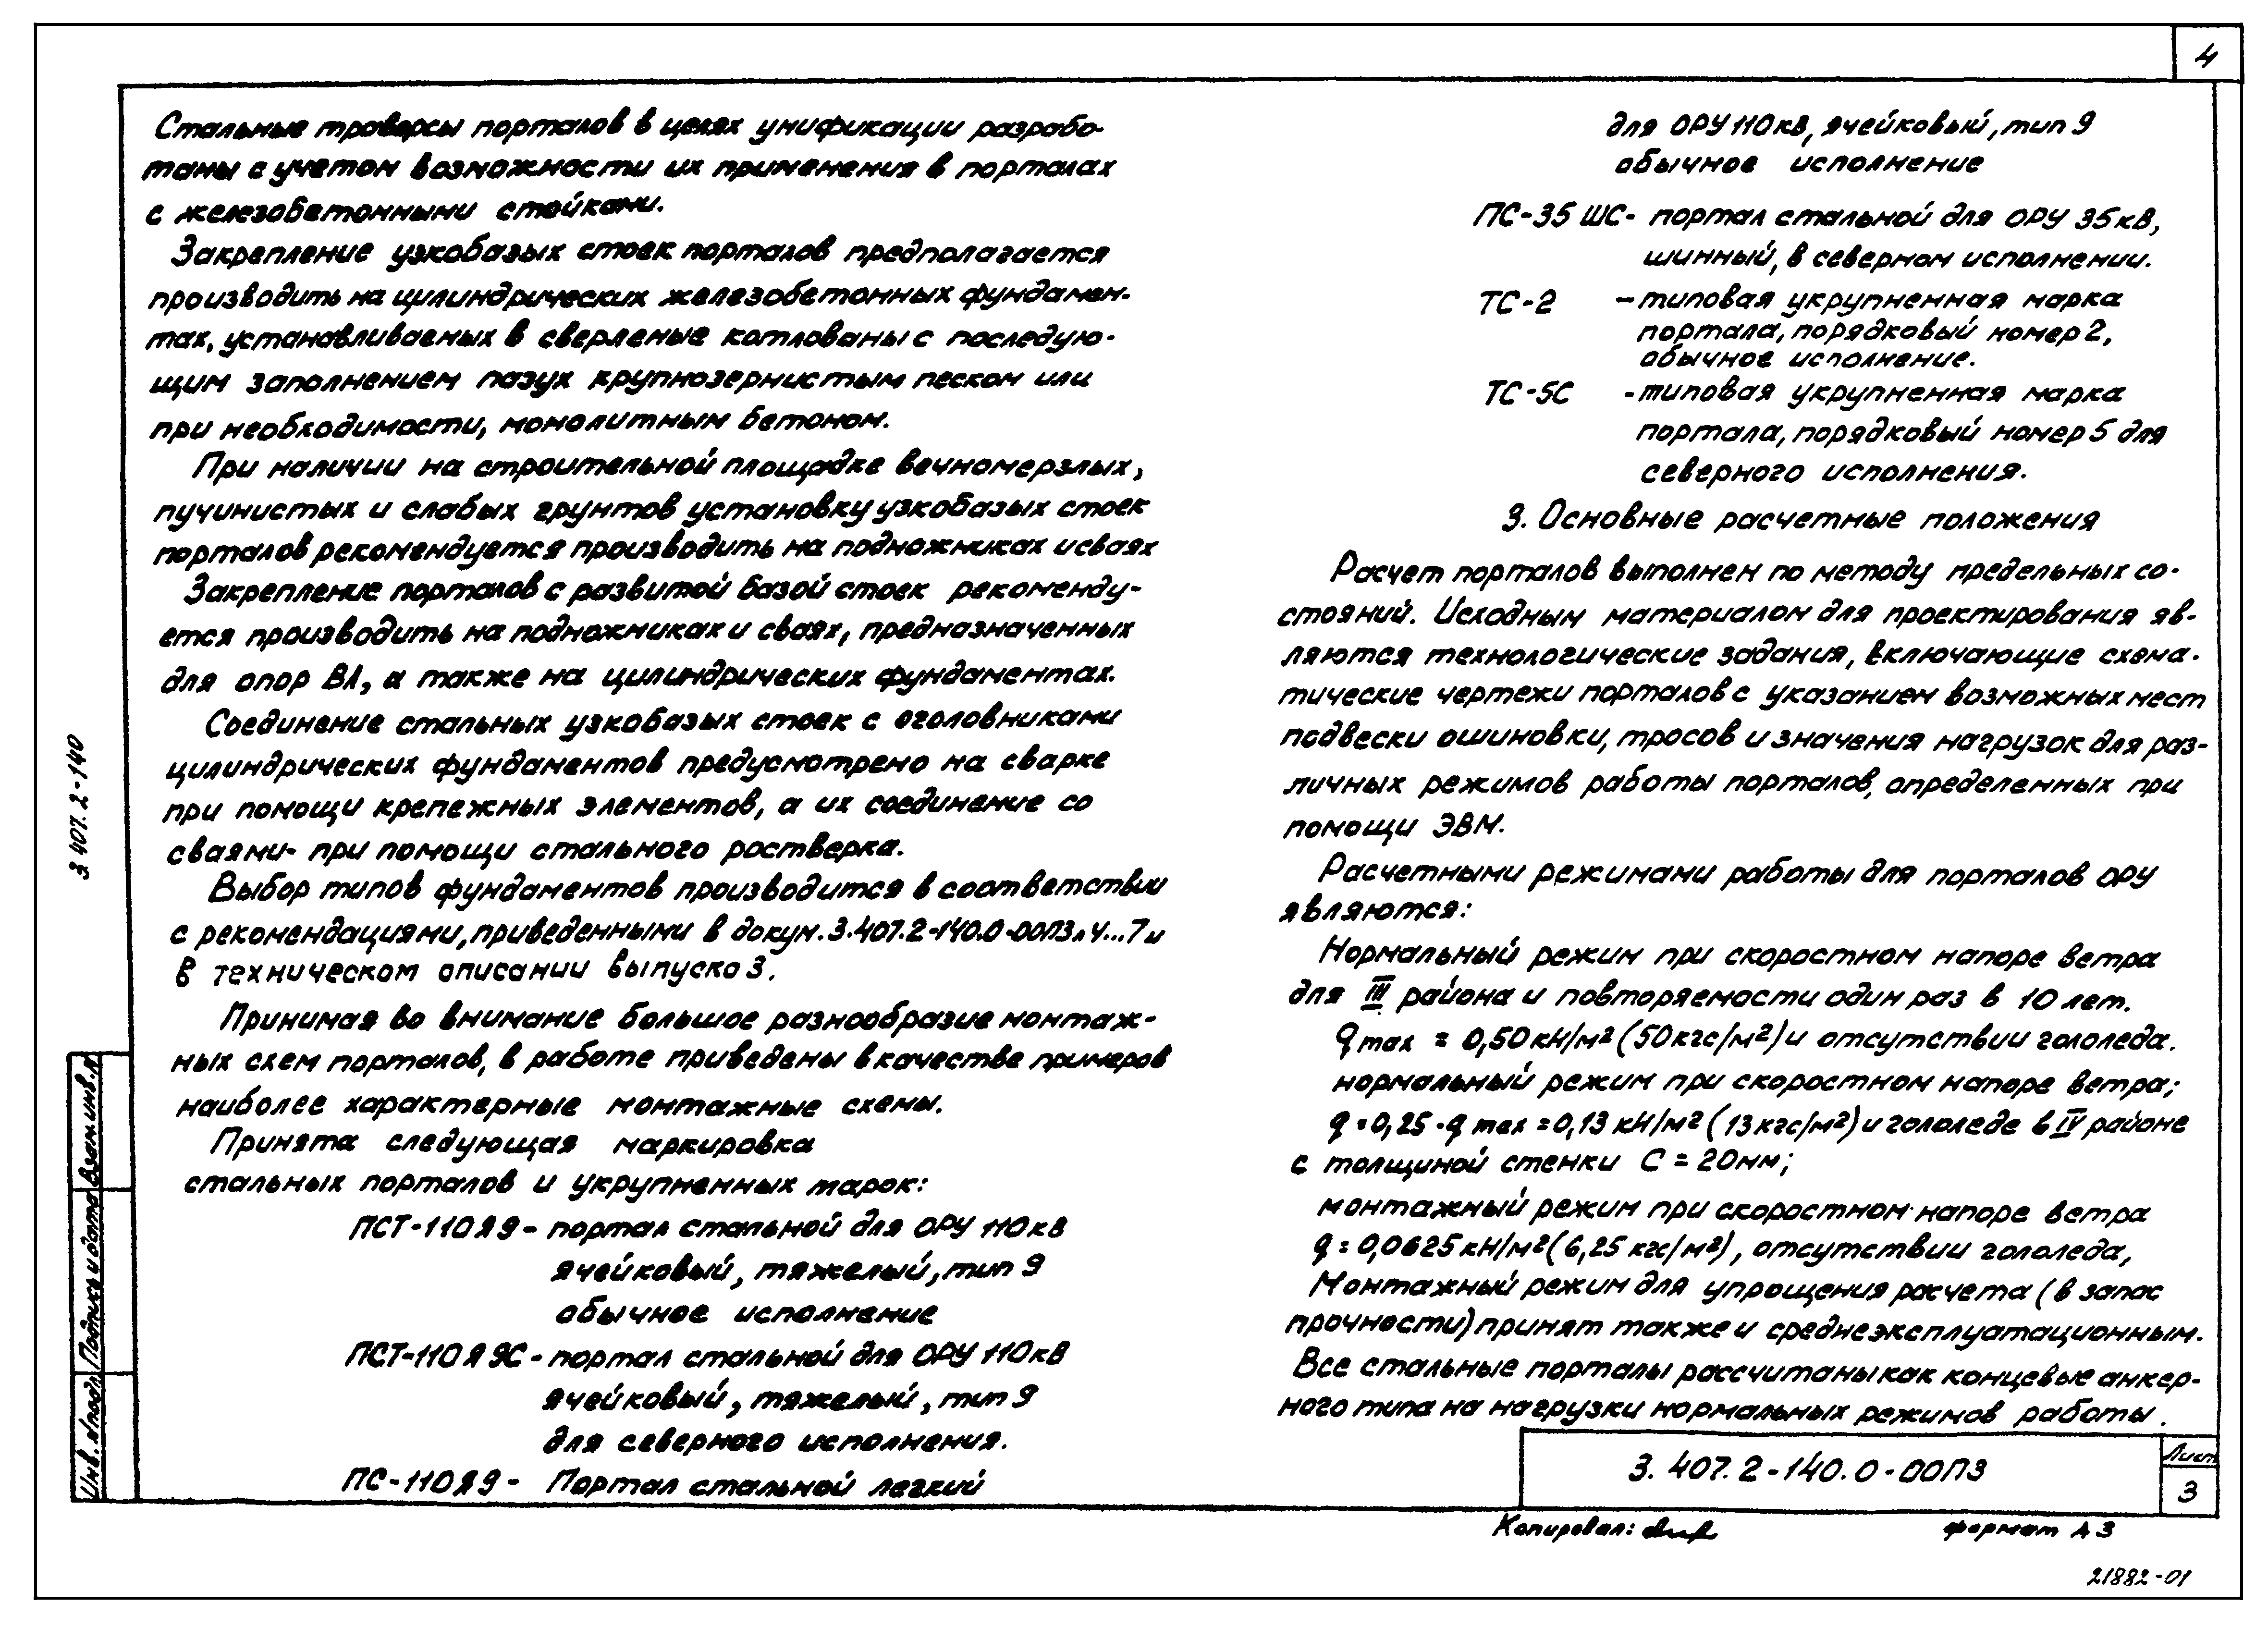 4
Стальные траверсы порталов в целях унификации разрабо-
таны с учетом возможности их применения в порталах
с железобетонными стойками.
Закрепление узкобазых стоек порталов предполагается
производить на цилиндрических железобетонных фундамен-
тах, устанавливаемых в сверленые котлованы с последую-
щим заполнением пазух крупнозернистым песком или
при необходимости, монолитным бетоном.
При наличии на строительной площадке вечномерзлых,
пучинистых и слабых грунтов установку узкобазых стоек
порталов рекомендуется производить на подножниках и сваях
Закрепление порталов с развитой базой стоек рекоменду-
ется производить на подножниках и сваях, предназначенных
для опор ВЛ, а также на цилиндрических фундаментах.
Соединение стальных узкобазых стоек с оголовниками
цилиндрических фундаментов предусмотрено на сварке
при помощи крепежных элементов, а их соединение со
сваями- при помощи стального ростверка.
Выбор типов фундаментов производится в соответствии
с рекомендациями, приведенными в докум. 3.407.2-140.0-00ПЗ л 4...7 и
в техническом описании выпуска 3.
Принимая во внимание большое разнообразие монтаж-
ных схем порталов, в работе приведены в качестве примеров
наиболее характерные монтажные схемы.
Принята следующая маркировка
стальных порталов и укрупненных марок:
ПСТ-110Я9 - портал стальной для ОРУ 110кВ
ячейковый, тяжелый, тип 9
обычное исполнение
ПСТ-110Я9С - портал стальной для ОРУ 110кВ
ячейковый, тяжелый, тип 9
для северного исполнения.
ПС-110Я9 - Портал стальной легкий
для ОРУ 110кВ, ячейковый, тип 9
обычное исполнение
ПС-35 ШС- портал стальной для ОРУ 35кВ,
шинный, в северном исполнении.
ТС-2 - типовая укрупненная марка
портала, порядковый номер 2,
обычное исполнение.
ТС-5С - типовая укрупненная марка
портала, порядковый номер 5 для
северного исполнения.
3. Основные расчетные положения
Расчет порталов выполнен по методу предельных со-
стояний. Исходным материалом для проектирования яв-
ляются технологические задания, включающие схема-
тические чертежи порталов с указанием возможных мест
подвески ошиновки, тросов и значения нагрузок для раз-
личных режимов работы порталов, определенных при
помощи ЭВМ.
Расчетными режимами работы для порталов ОРУ
являются:
Нормальный режим при скоростном напоре ветра
для III района и повторяемости один раз в 10 лет.
q max = 0,50 кН/м² (50 кгс/м²) и отсутствии гололеда.
нормальный режим при скоростном напоре ветра;
q = 0,25 · q max = 0,13 кН/м² (13 кгс/м²) и гололеде в IV районе
с толщиной стенки С = 20мм;
монтажный режим при скоростном напоре ветра
q = 0,0625 кН/м² (6,25 кгс/м²), отсутствии гололеда,
Монтажный режим для упрощения расчета (в запас
прочности) принят также и среднеэксплуатационным.
Все стальные порталы рассчитаны как концевые анкер-
ного типа на нагрузки нормальных режимов работы.
3 407.2-140
Взам.инв.№
Подпись и дата
Инв. №подл
3. 407. 2-140. 0-00ПЗ
Лист
3
Копировал:
формат А3
21882-01